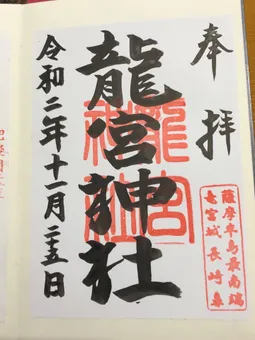 奉拝
龍宮神社
龍宮
神社
薩摩半島最南端
竜宮城長崎鼻
令和二年十一月二十五日